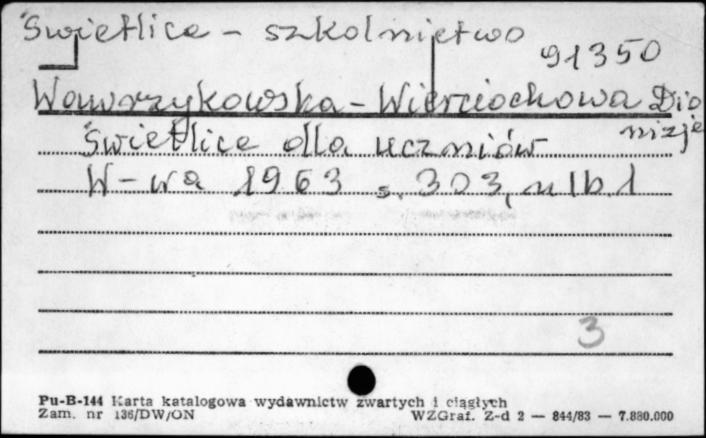 Świetlice - szkolnictwo
91350
Wawrzykowska-Wierciochowa Dio
nizje
Świetlice dla uczniów
W-wa 1963 s. 303, nlb. 1
3
Pu-B-144 Karta katalogowa wydawnictw zwartych i ciągłych
Zam. nr 136/DW/ON WZGraf. Z-d 2 — 844/83 — 7.880.000